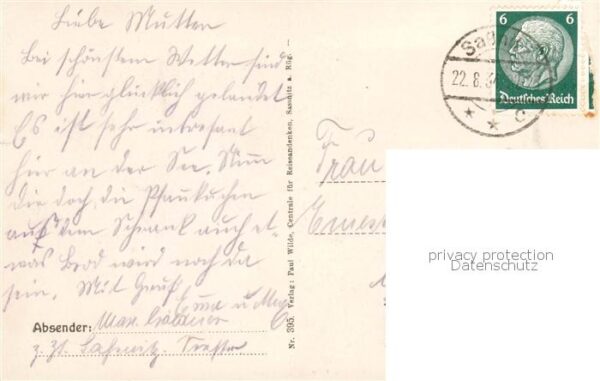 Liebe Mutter
Bei schönstem Wetter sind
wir hier glücklich gelandet
Es ist sehr interesant
hier an der See. Nimm
dir doch die Pfankuchen
auf dem Schrank auch et-
was Brod wird noch da
sein. Mit Gruß
Emma u Max
Absender: Max
z. Zt. Saßnitz
Nr. 395. Verlag: Paul Wilde, Centrale für Reiseandenken, Sassnitz a. Rüg. —
Frau
6 6
Deutsches Reich
22.8.34
c
privacy protection
Datenschutz